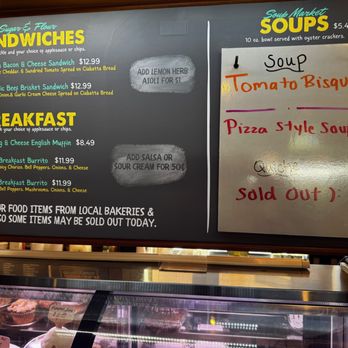 Sugar & Flour
NDWICHES
and your choice of applesauce or chips.
Bacon & Cheese Sandwich $12.99
Cheddar, & Sundried Tomato Spread on Ciabatta Bread
ic Beef Brisket Sandwich $12.99
Onion, & Garlic Cream Cheese Spread on Ciabatta Bread
ADD LEMON HERB
AIOLI FOR $1
REAKFAST
choice of applesauce or chips.
g & Cheese English Muffin $8.49
Breakfast Burrito $11.99
Chorizo, Bell Peppers, Onions, & Cheese
Breakfast Burrito $11.99
Bell Peppers, Mushrooms, Onions, & Cheese
ADD SALSA OR
SOUR CREAM FOR 50¢
UR FOOD ITEMS FROM LOCAL BAKERIES &
SO SOME ITEMS MAY BE SOLD OUT TODAY.
Soup Market
SOUPS $5.4
10 oz. bowl served with oyster crackers.
↓ Soup
Tomato Bisqu
Pizza Style Soup
Sold Out ):